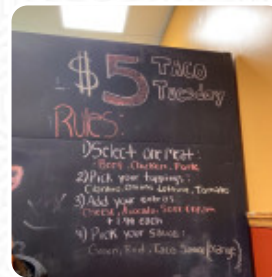 $5 TACO
Tuesday
Rules:
1) Select one meat:
Beef, Chicken, Pork
2) Pick your toppings:
Cilantro, Onions, Lettuce, Tomatoes
3) Add your extras
Cheese, Avocado, Sour Cream
each
4) Pick your sauce:
Green, Red, Taco Sauce (orange)